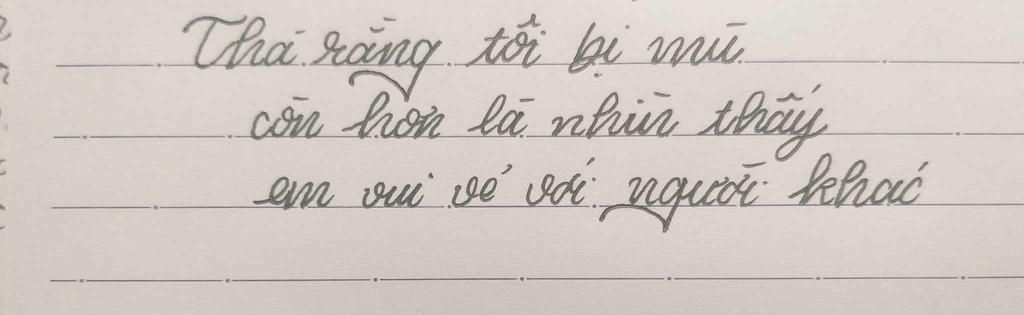 Thà rằng tôi bị mù
còn hơn là nhìn thấy
em vui vẻ với người khác